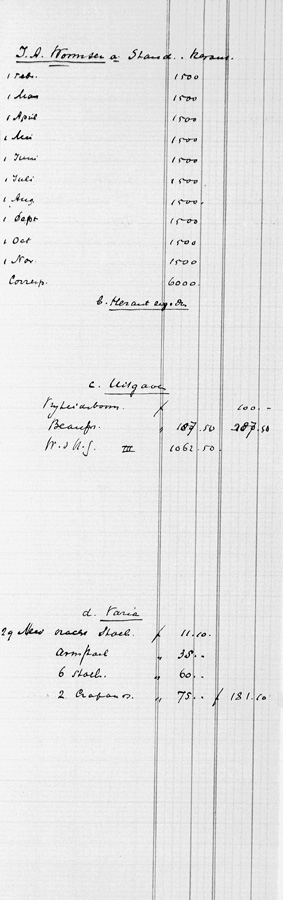 J. A. Wormser a Stand..
1 Febr. 1500
1 Mar 1500
1 April 1500
1 Mei 1500
1 Juni 1500
1 Juli 1500
1 Aug. 1500.
1 Sept 1500
1 Oct 1500
1 Nov. 1500
Corresp. 6000.
b.
c. Uitgave
f 100.-
" 187.50 287.50
W. d. U. G. III 1062.50.
d. Varia
29 Mei f 11.10.
Armstoel " 35..
6 Stoel. " 60..
2 Crapauds. " 75.. f 181.10